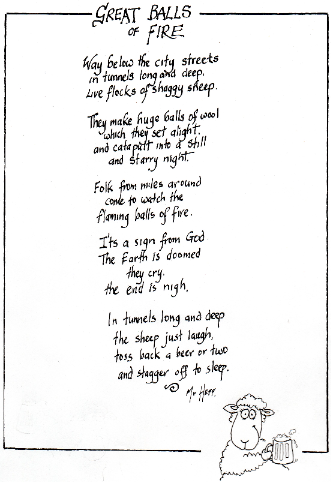 GREAT BALLS
OF
FIRE
Way below the city streets
in tunnels long and deep,
Live flocks of shaggy sheep.
They make huge balls of wool
which they set alight,
and catapult into a still
and starry night.
Folk from miles around
come to watch the
flaming balls of fire.
It's a sign from God
The Earth is doomed
they cry.
the end is nigh.
In tunnels long and deep
the sheep just laugh,
toss back a beer or two
and stagger off to sleep.
Mr